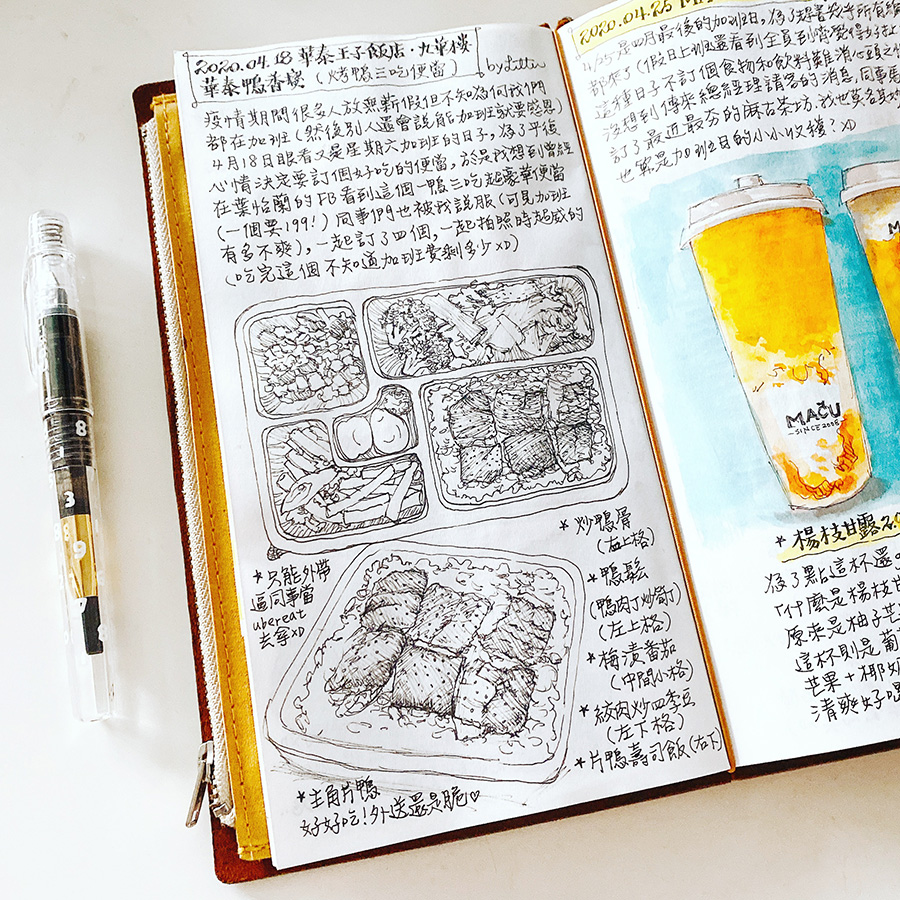 2020.04.18 華泰王子飯店·九華樓
華泰鴨香饗 (烤鴨三吃便當)
疫情期間很多人放無薪假但不知為何我們
都在加班 (然後別人還會說能加班就要感恩)
4月18日眼看又是星期六加班的日子,為了平復
心情決定要訂個好吃的便當,於是我想到曾經
在葉怡蘭的FB看到這個一鴨三吃超豪華便當
(一個要199!) 同事們也被我說服 (可見加班
有多不爽),一起訂了四個,一起拍照時超威的
(吃完這個不知道加班費剩多少XD)
*只能外帶
逼同事當
ubereat
去拿XD
*炒鴨骨
(右上格)
*鴨鬆
(鴨肉丁炒筍丁)
(左上格)
*梅漬番茄
(中間小格)
*絞肉炒四季豆
(左下格)
*片鴨壽司飯(右下)
*主角片鴨
好好吃!外送還是脆♡
2020.04.25
4/25是四月最後的加班日,為了趕著
都來了 (假日上班還看到全員到齊覺得
這種日子不訂個食物和飲料難消心頭之
沒想到傳來總經理請客的消息,同事
訂了最近最夯的麻古茶坊,
也算是加班日的小小收穫?XD
MAČU
SINCE 2008
*楊枝甘露2.0
為了點這杯還
「什麼是楊枝甘
原來是柚子芒
這杯則是葡
芒果+椰奶
清爽好喝
8
3
9